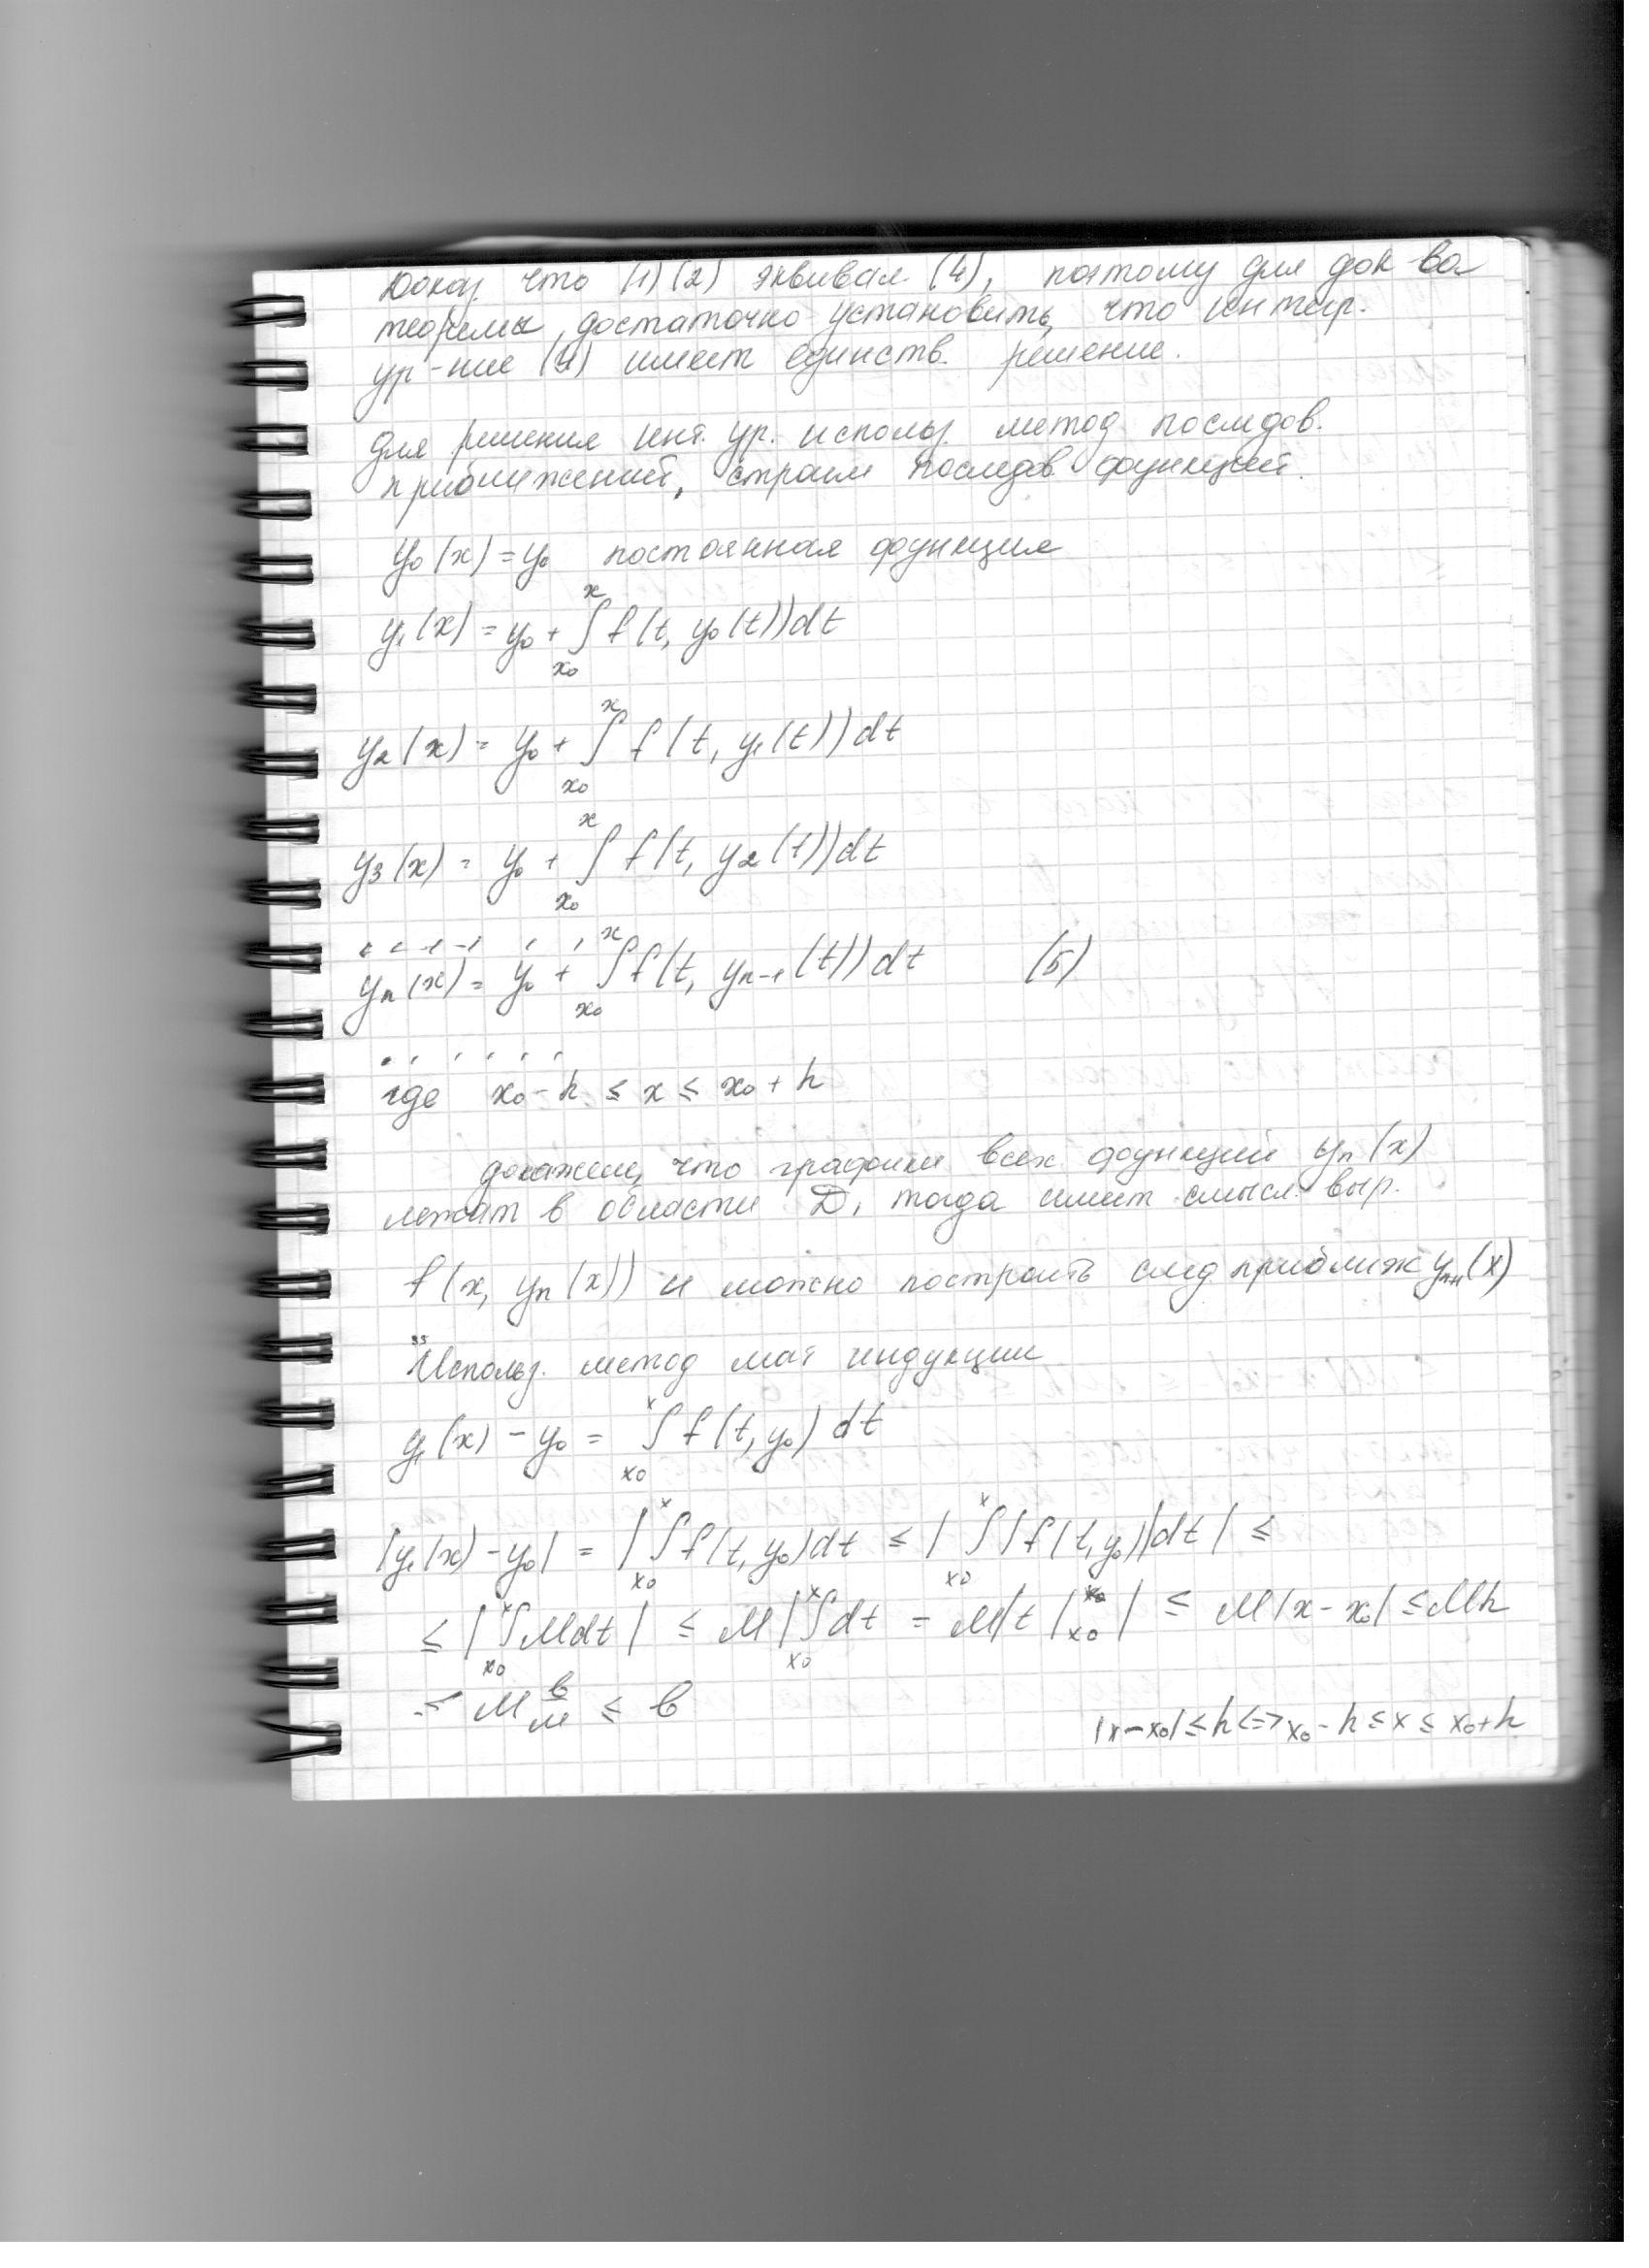 Доказ. что (1) (2) эквивал. (4), поэтому для док-ва
теоремы достаточно установить, что интегр.
ур-ние (4) имеет единств. решение.
Для решения инт. ур. использ. метод последов.
приближений, строим последов функций.
y₀(x) = y₀ постоянная функция
y₁(x) = y₀ + ∫_{x₀}^{x} f(t, y₀(t))dt
y₂(x) = y₀ + ∫_{x₀}^{x} f(t, y₁(t))dt
y₃(x) = y₀ + ∫_{x₀}^{x} f(t, y₂(t))dt
. . . . . . .
yₙ(x) = y₀ + ∫_{x₀}^{x} f(t, yₙ₋₁(t))dt (5)
. . . . . .
где x₀ - h ≤ x ≤ x₀ + h
докажем, что графики всех функций yₙ(x)
лежат в области D, тогда имеет смысл выр.
f(x, yₙ(x)) и можно построить след приближ yₙ₊₁(x)
Использ. метод мат индукции
y₁(x) - y₀ = ∫_{x₀}^{x} f(t, y₀) dt
|y₁(x) - y₀| = |∫_{x₀}^{x} f(t, y₀)dt ≤ |∫_{x₀}^{x} |f(t, y₀)|dt| ≤
≤ |∫_{x₀}^{x} Mdt| ≤ M|∫_{x₀}^{x} dt = M|t|_{x₀}| ≤ M|x - x₀| ≤ Mh
≤ M в/м ≤ в
|x - x₀| ≤ h <=> x₀ - h ≤ x ≤ x₀ + h